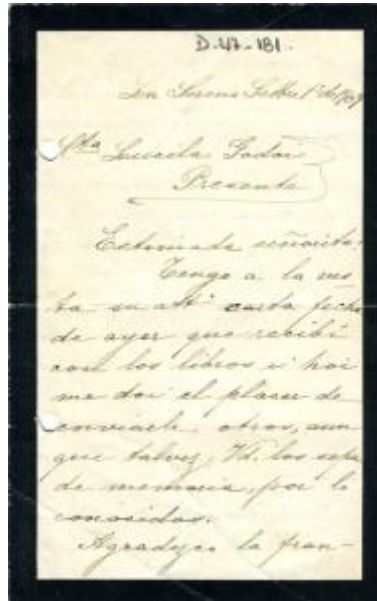 D-47-181.
La Serena Setbre 1º de 1909
Sta Lucila Godoi
Presente
Estimada señorita:
Tengo a la vis
ta su att. carta fecha
de ayer que recibí
con los libros i hoi
me doi el placer de
enviarle otros, aun
que talvez, Vd. los sepa
de memoria, por lo
conocidos.
Agradezco la fran-